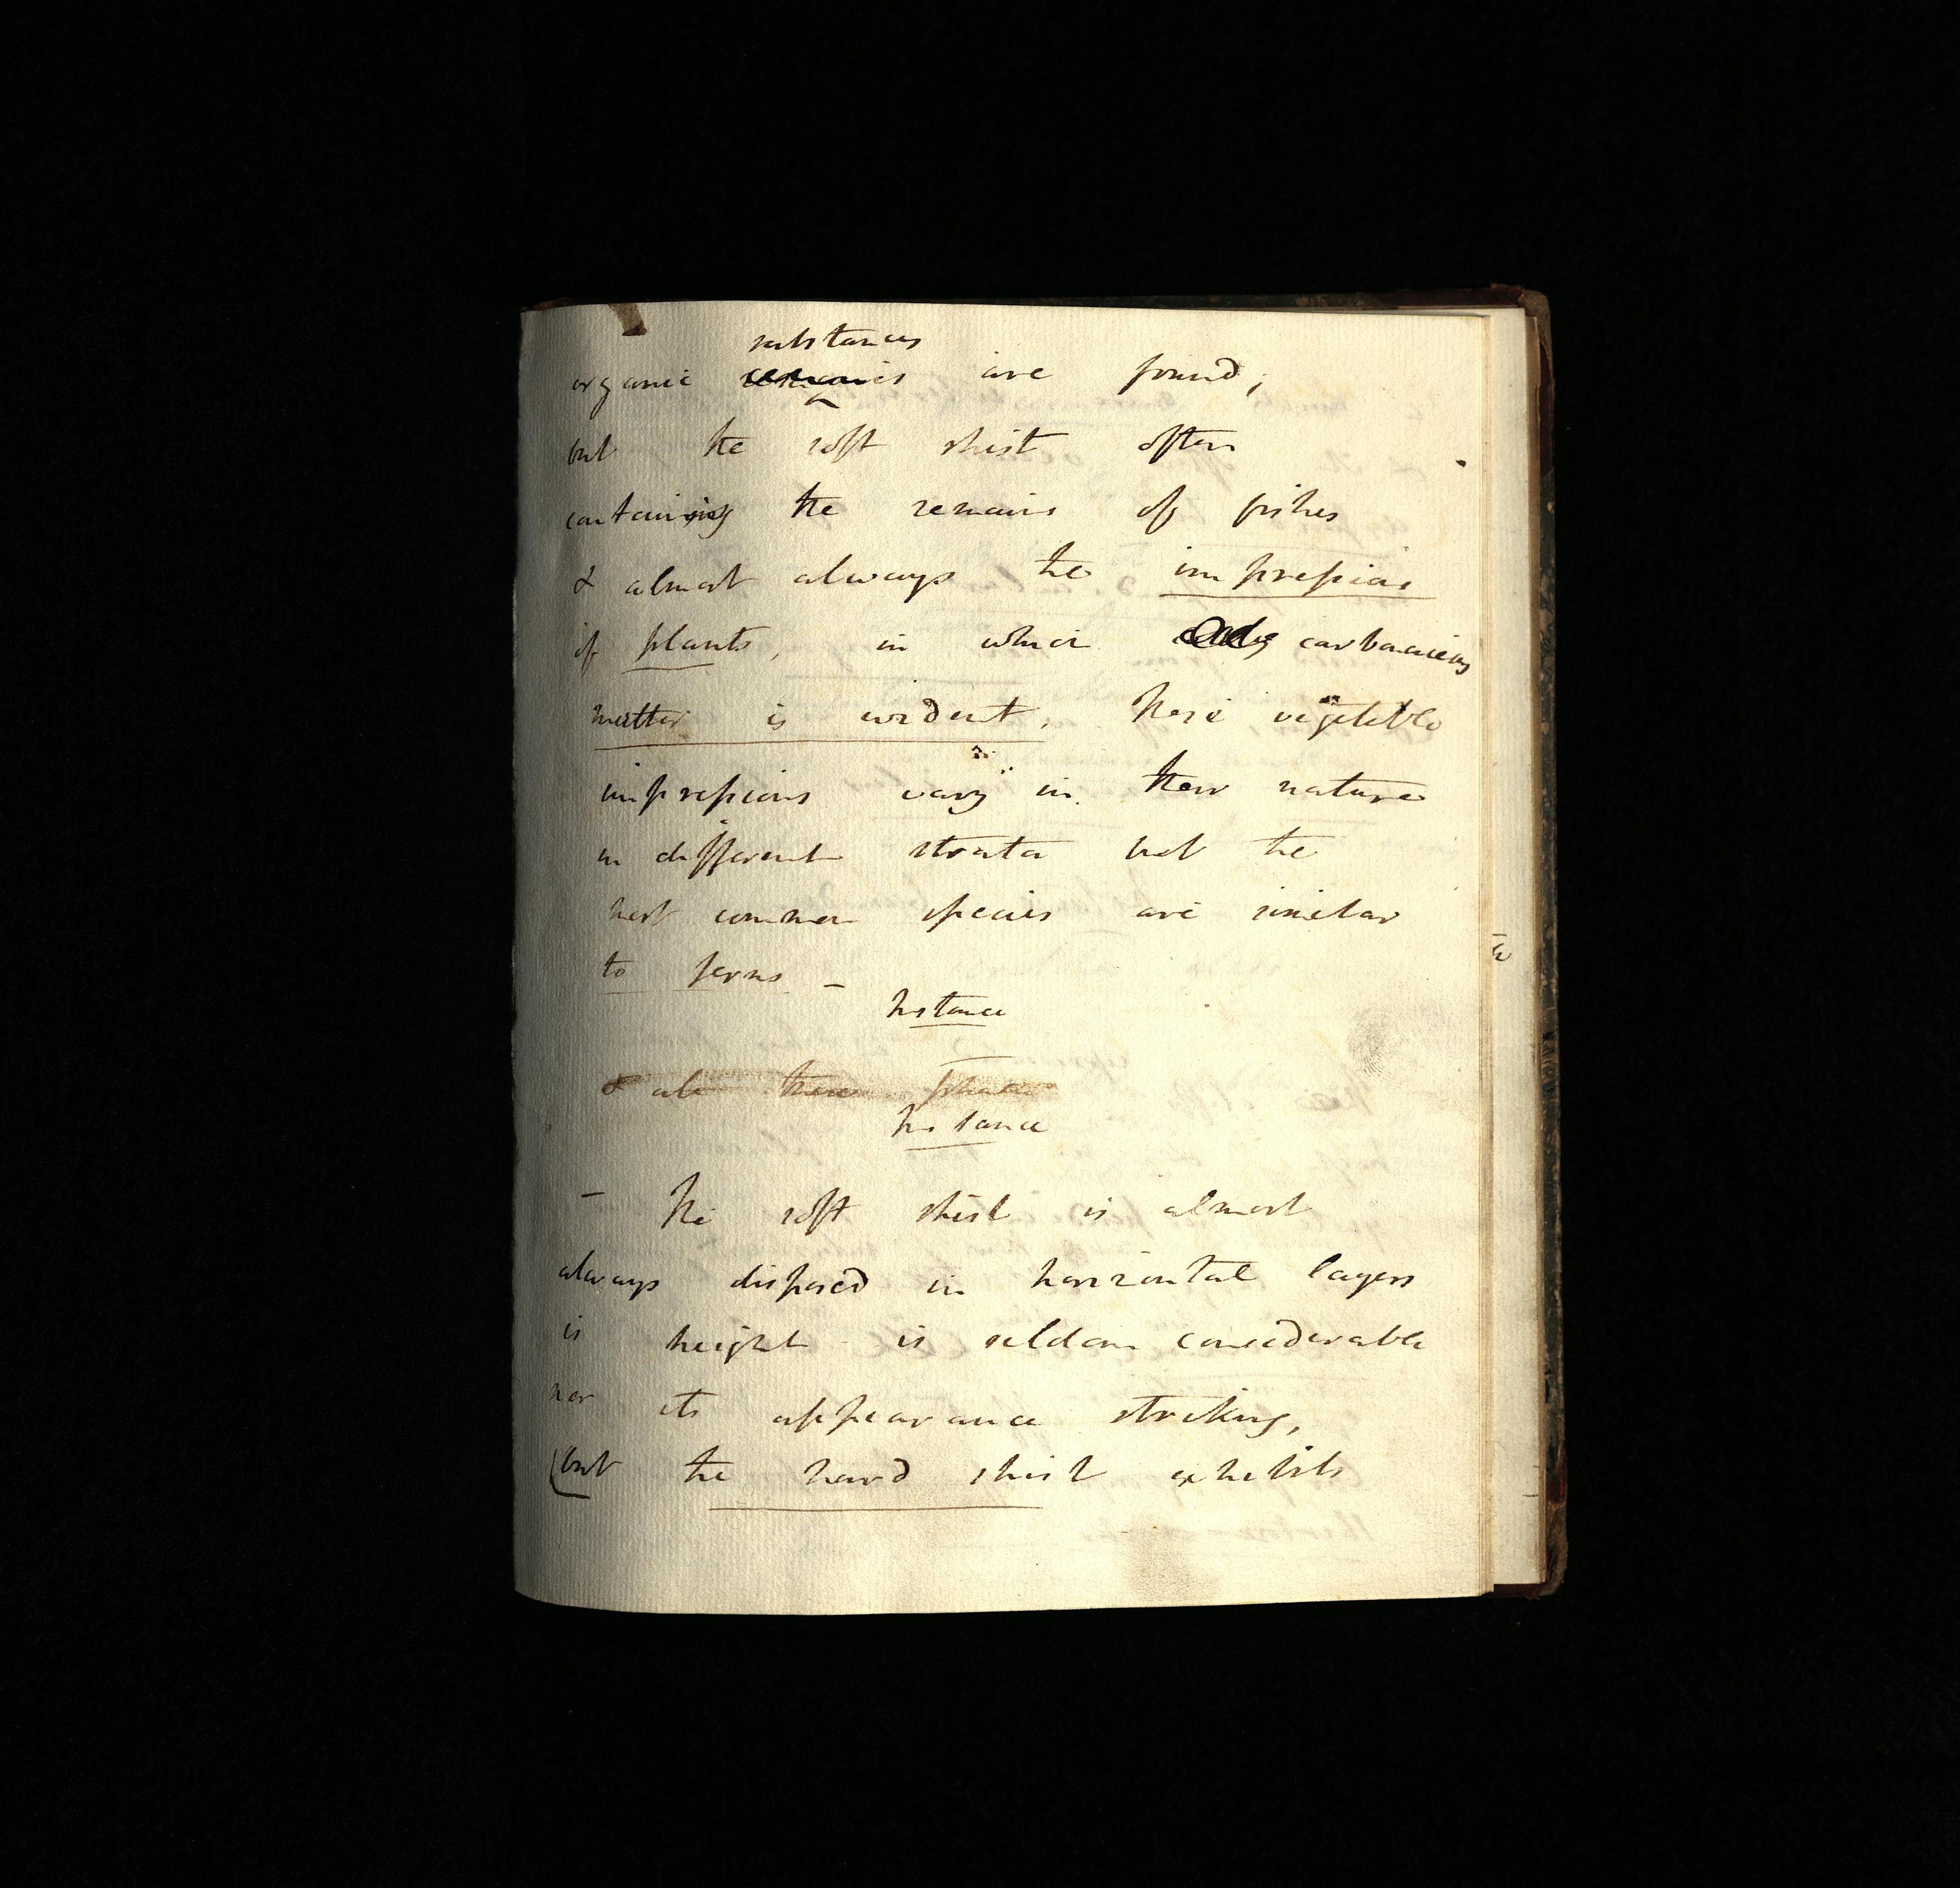 substances
organic remains are found,
but the soft shist often
containing the remains of fishes
& almost always the impressions
of plants, in which carbonaceous
matter is evident. These vegetable
impressions vary in their nature
in different strata but the
most common species are similar
to ferns –
Instance
& also these
Instance
– The soft shist is almost
always disposed in horizontal layers
is height is seldom considerable
nor its appearance striking,
(but the hard shist exhibits